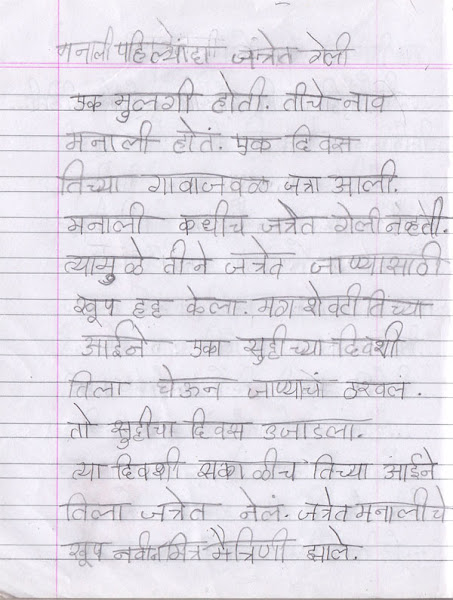 मनाली पहिल्यांदा जत्रेत गेली
एक मुलगी होती. तीचे नाव
मनाली होतं. एक दिवस
तिच्या गावाजवळ जत्रा आली.
मनाली कधीच जत्रेत गेली नव्हती.
त्यामुळे तीने जत्रेत जाण्यासाठी
खूप हट्ट केला. मग शेवटी तिच्या
आईने एका सुट्टीच्या दिवशी
तिला घेऊन जाण्याचं ठरवलं.
तो सुट्टीचा दिवस उजाडला.
त्या दिवशी सकाळीच तिच्या आईने
तिला जत्रेत नेलं. जत्रेत मनालीचे
खूप नवीन मित्र मैत्रिणी झाले.